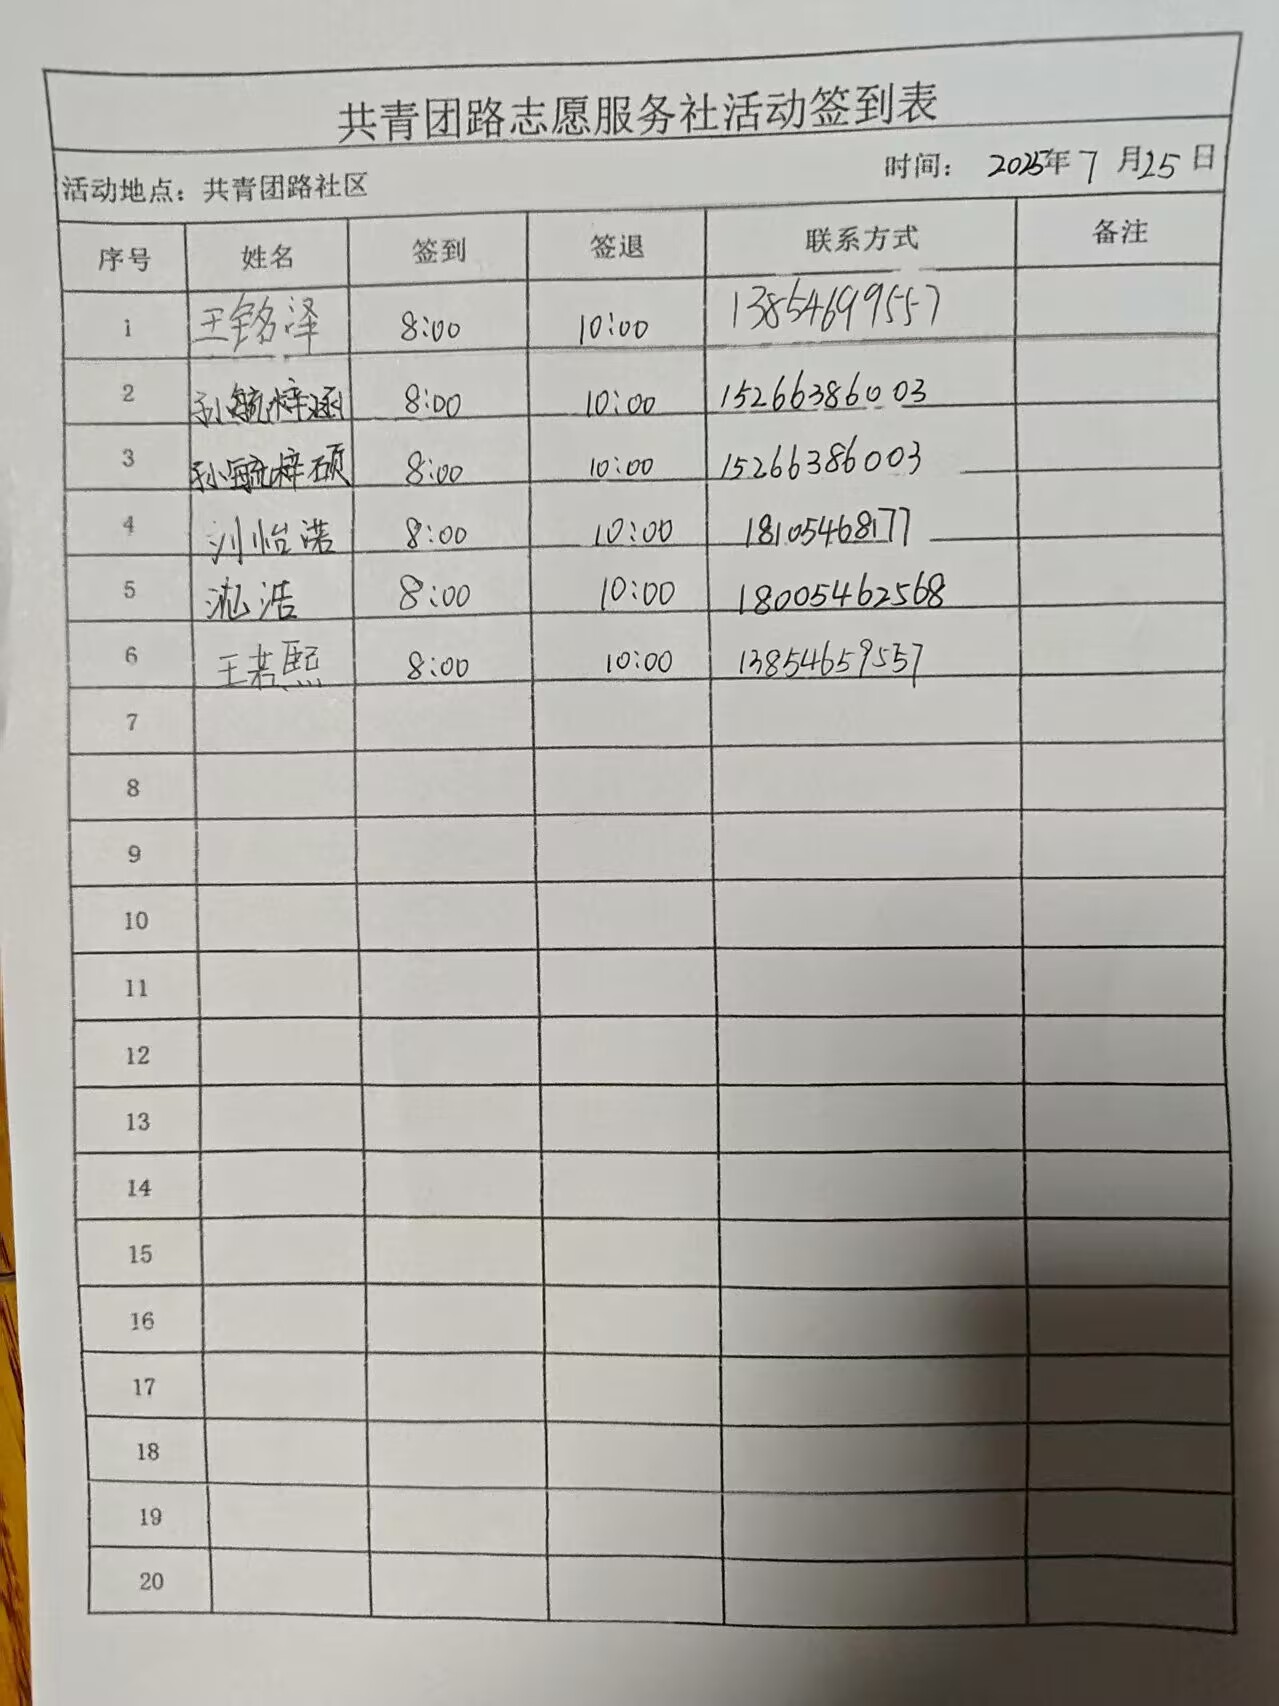 共青团路志愿服务社活动签到表
活动地点：共青团路社区 时间： 2025年7月25日
序号 姓名 签到 签退 联系方式 备注
1 王铭泽 8:00 10:00 13854699557
2 孙毓梓涵 8:00 10:00 15266386003
3 孙毓梓硕 8:00 10:00 15266386003
4 刘怡诺 8:00 10:00 18105468177
5 浩 8:00 10:00 18005462568
6 王若熙 8:00 10:00 13854659557
7
8
9
10
11
12
13
14
15
16
17
18
19
20